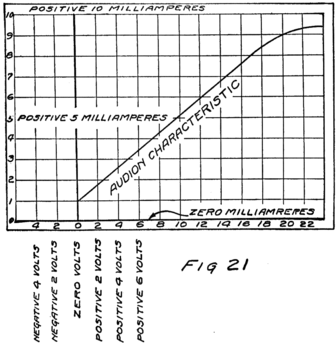 POSITIVE 10 MILLIAMPERES
10
9
8
7
6
POSITIVE 5 MILLIAMPERES
5
4
3
2
1
0
AUDION CHARACTERISTIC
ZERO MILLIAMPERES
4 2 0 2 4 6 8 10 12 14 16 18 20 22
NEGATIVE 4 VOLTS
NEGATIVE 2 VOLTS
ZERO VOLTS
POSITIVE 2 VOLTS
POSITIVE 4 VOLTS
POSITIVE 6 VOLTS
FIG 21